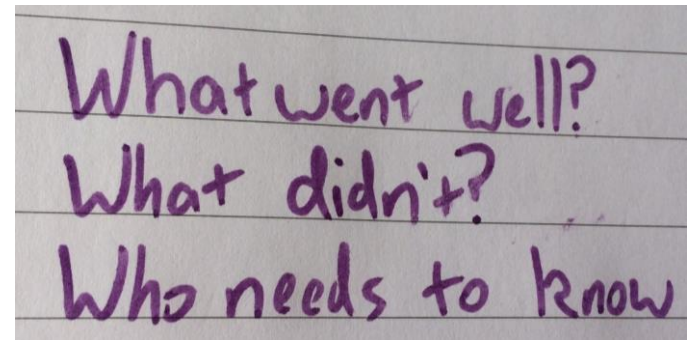 What went well?
What didn't?
Who needs to know